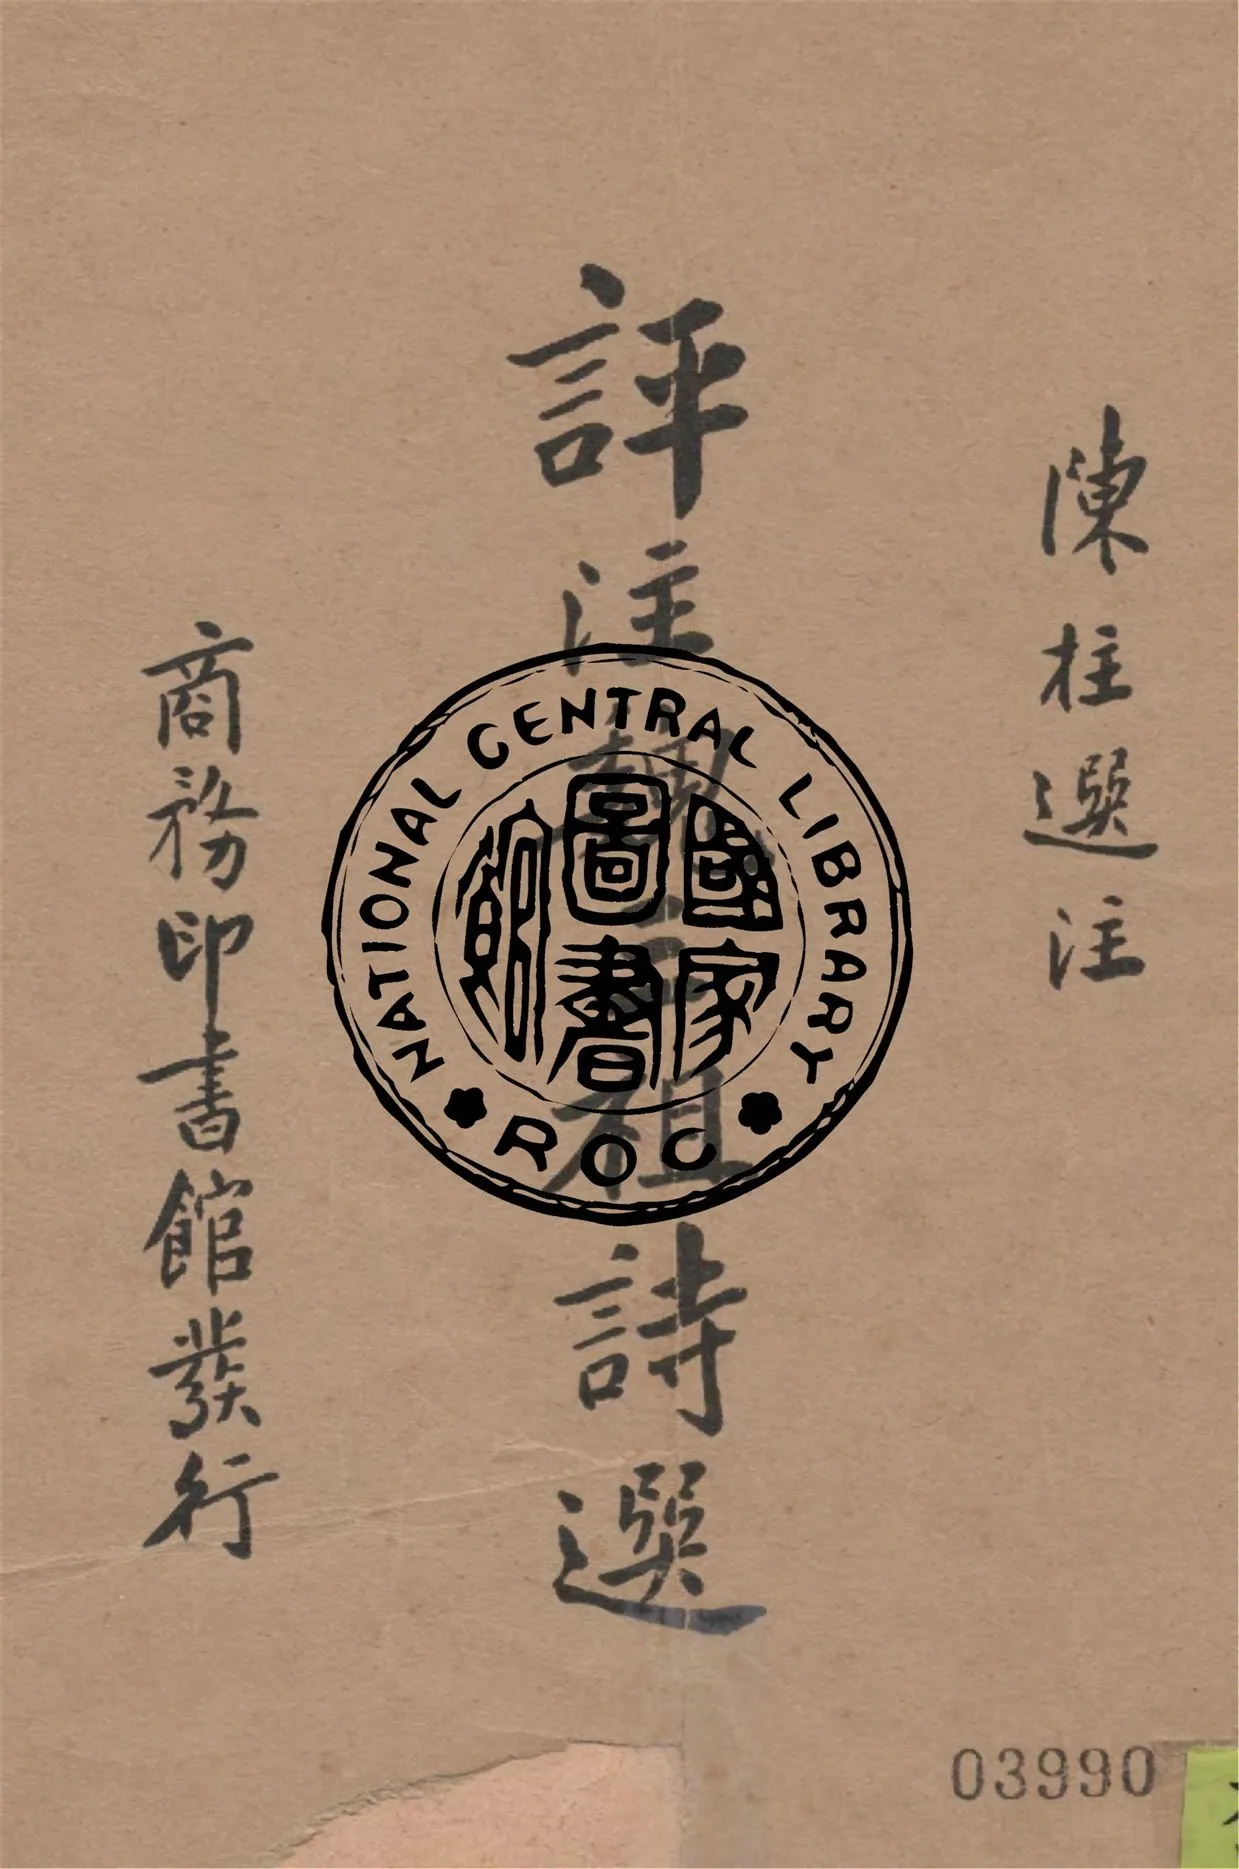 陳柱選注
評注魏三祖詩選
商務印書館發行
NATIONAL CENTRAL LIBRARY
國家
圖書
館
ROC
03990